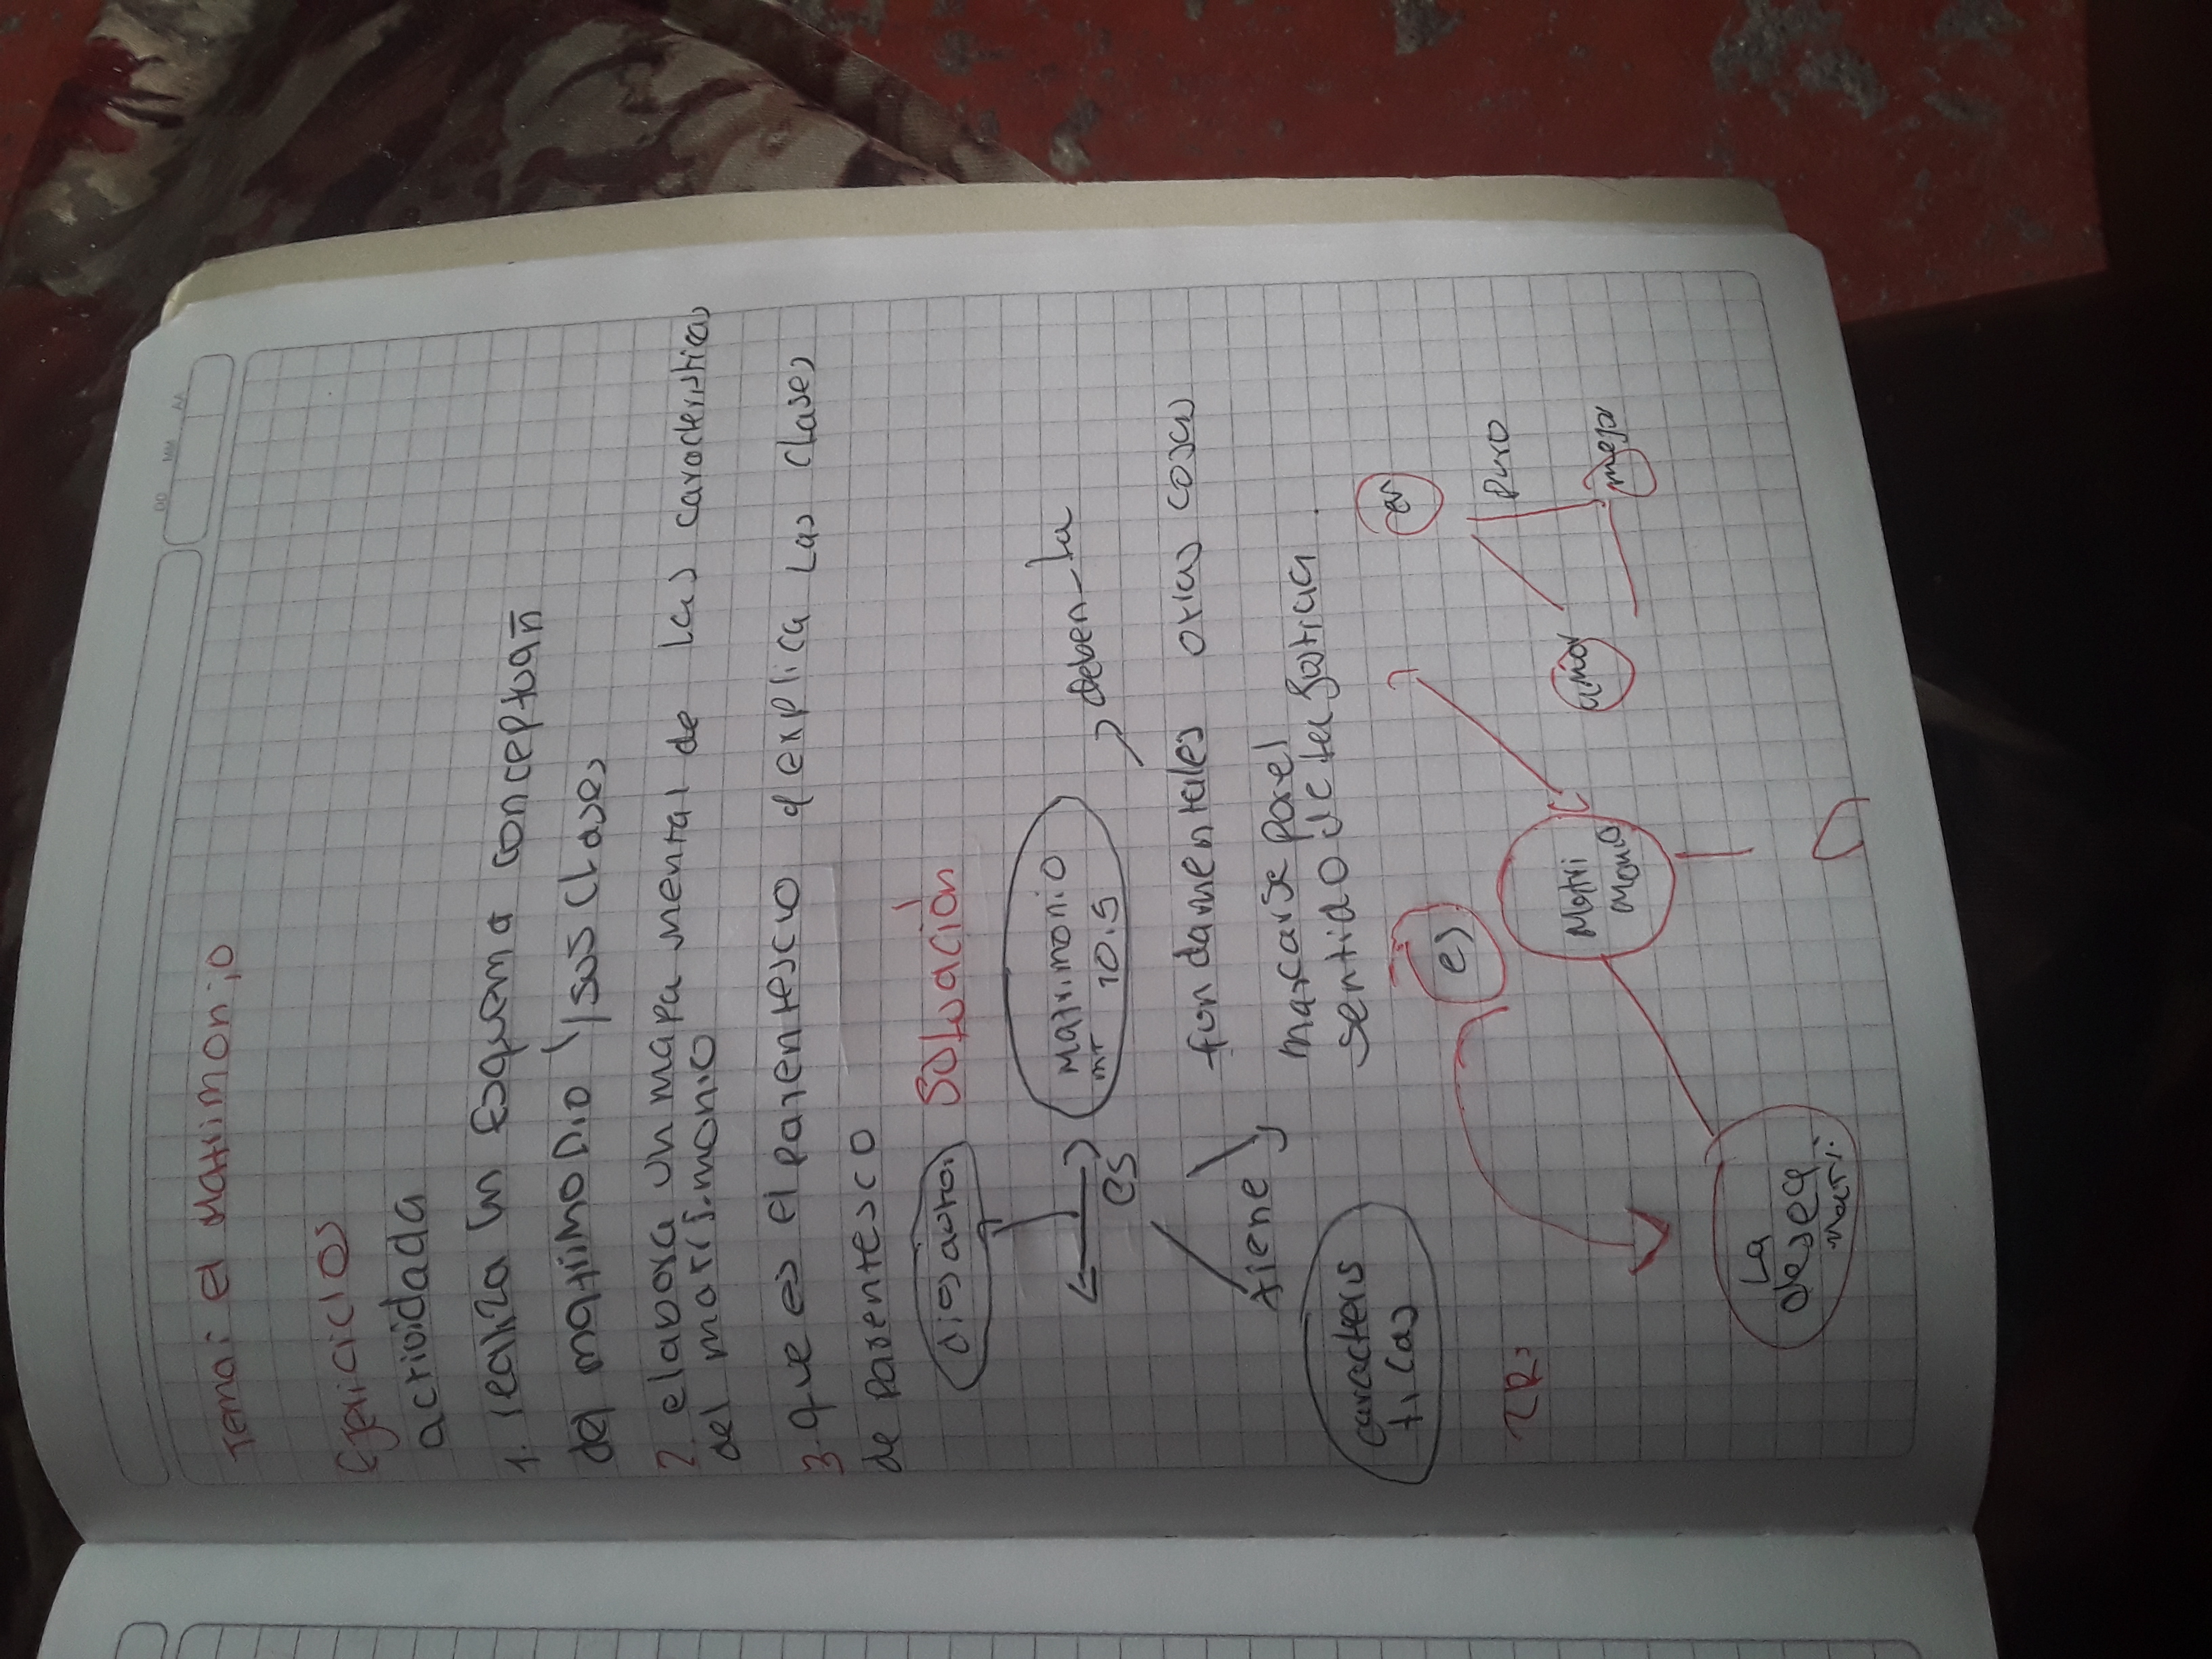 DD MM AA
Tema: el Matrimonio
Ejericicios
actividada
1. realiza un Esquema conceptual
del matrimonio y sus clases
2. elabora un mapa mental de las caracteristicas
del matrimonio
3. que es el parentesco y explica las clases
de parentesco
Solución
Dios autor.
Matrimonio
mr 10.5
es
deben la
tiene
fundamentales otras cosas
marcarse por el
sentido de
caracteris
ticas
es
Matri
monio
amor
puro
mejor
La
desea
matri.
2R: